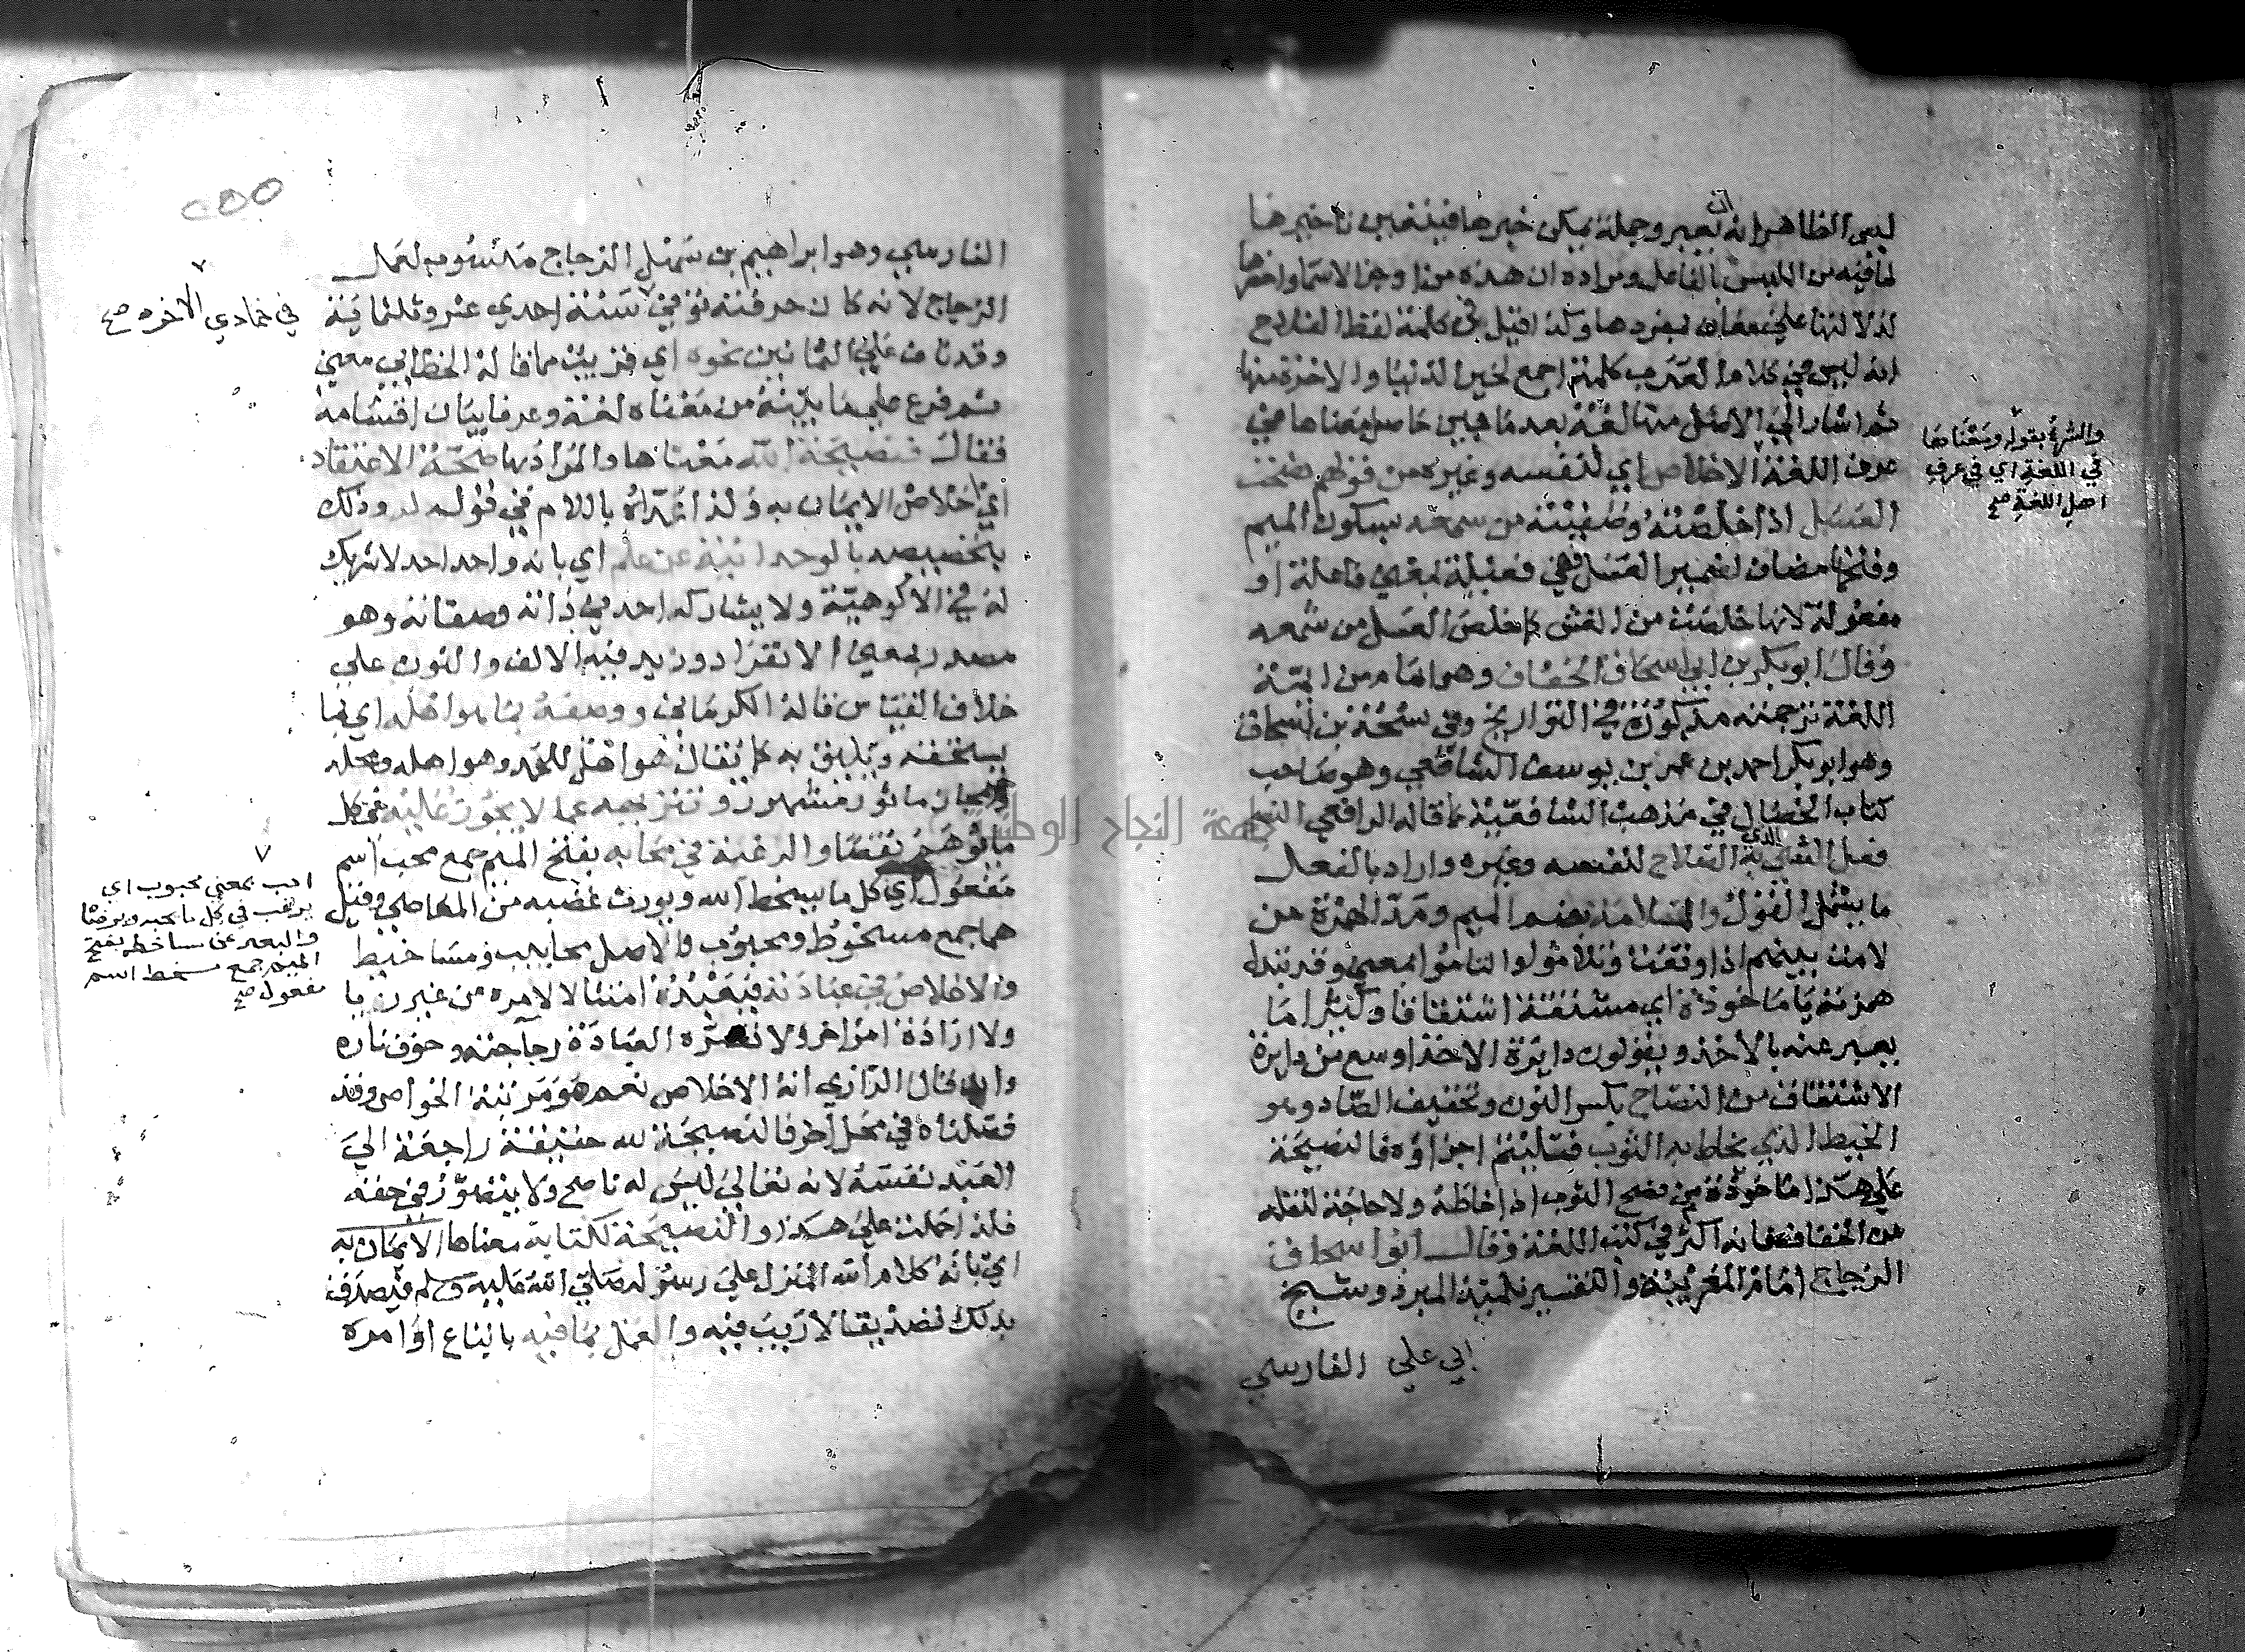 ليس الظاهر انه ان يعبر وجملة يمكن خبرها فيتعين تاخيرها
لما فيه من اللبس بالفاعل ومراده ان هذه من اوجز الاسما واخصرها
لدلالتها على معان بمفردها وكذا قيل في كلمة لفظ الفلاح
انه ليس في كلام العرب كلمة اجمع لخير الدنيا والاخرة منها
ثم اشار الى الاصل منها لغة بعد ما هيىن حاصل معناها في
والشرع بقوله ومعناها
في اللغة اي في عرف
اهل اللغة صح
عرف اللغة الاخلاص اي لنفسه وغيره من قولهم نصحت
العسل اذا خلصته وصفيته من شمعه بسكون الميم
وفتحها مضاف لضمير العسل فهي فعيلة بمعنى فاعلة او
مفعولة لانها خلصت من الغش كما خلص العسل من شمعه
وقال ابو بكر بن ابي اسحاق الخفاف وهو امام من ائمة
اللغة ترجمته مذكورة في التواريخ وفي نسخة بن اسحاق
وهو ابو بكر احمد بن عمر بن يوسف الشافعي وهو صاحب
كتاب الخصال في مذهب الشافعية كما قاله الرافعي النصح
فعل الشي الذي به الصلاح لنفسه وغيره واراد بالفعل
ما يشمل القول والملاامة بضم الميم ومد الهمزة من
لامت بينهم اذا وفقت وتلاموا والتاموا بمعنى وقد تبدل
همزته يا ماخوذة اي مشتقة اشتقاقا وكثيرا ما
يعبر عنه بالاخذ ويقولون دايرة الاخذ اوسع من دايرة
الاشتقاق من النصاح بكسر النون وتخفيف الصاد وهو
الخيط الذي يخاط به الثوب فتلتئم اجزاؤه فالنصيحة
على هذا ماخوذة من نصح الثوب اذا خاطه ولا حاجة لنقله
عن الخفاف فانه اكثر في كتب اللغة وقال ابو اسحاق
الزجاج امام العربية والتفسير تلميذ المبرد وشيخ
ابي علي الفارسي
٢٥٥
الفارسي وهو ابراهيم بن سهل الزجاج منسوب لعمل
الزجاج لانه كان حرفته توفي سنة احدي عشر وثلثماية
في جمادي الاخره صح
وقد ناف على الثمانين نحوه اي قريب مما قاله الخطابي معنى
ثم فرع عليه ما بينه من معناه لغة وعرفا بيان اقسامه
فقال فنصيحة الله معناها والمراد بها صحة الاعتقاد
اي اخلاص الايمان به ولذا عداه باللام في قوله له وذلك
بتخصيصه بالوحدانية عن علم اي بانه واحد احد لا شريك
له في الالوهية ولا يشاركه احد في ذاته وصفاته وهو
مصدر بمعنى الانفراد وزيد فيه الالف والنون على
خلاف القياس قاله الكرماني ووصفه بما هو اهله اي بما
يستحقه ويليق به كما يقال هو اهل للحمد وهو اهله ومحله
ماثور مشهور وتنزيهه عما لا يجوز عليه من كل
ما يوهم نقصا والرغبة في محابه بفتح الميم جمع محب اسم
مفعول اي كل ما يسخط الله ويورث غضبه من المعاصي وقيل
احب بمعنى محبوب اي
يرغب في كل ما يحبه ويرضا
والبعد عن مساخطه بفتح
الميم جمع مسخط اسم
مفعول صح
هما جمع مسخوط ومحبوب والاصل محابيب ومساخيط
والاخلاص في عبادته فيعبده امتثالا لامره من غير ريا
ولا ارادة امر اخر ولا تضره العبادة رجا جنته وخوف ناره
وان قال الرازي انه الاخلاص نعم هو مرتبة الخواص وقد
فصلناه في محل اخر فالنصيحة لله حقيقة راجعة الى
العبد نفسه لانه تعالى ليس له ناصح ولا يتصور في حقه
فلذا حملت على هذا والنصيحة لكتابه معناها الايمان به
اي بانه كلام الله المنزل على رسوله صلى الله عليه وسلم فيصدق
بذلك تصديقا لا ريب فيه والعمل بما فيه باتباع اوامره
جامعة النجاح الوطنية